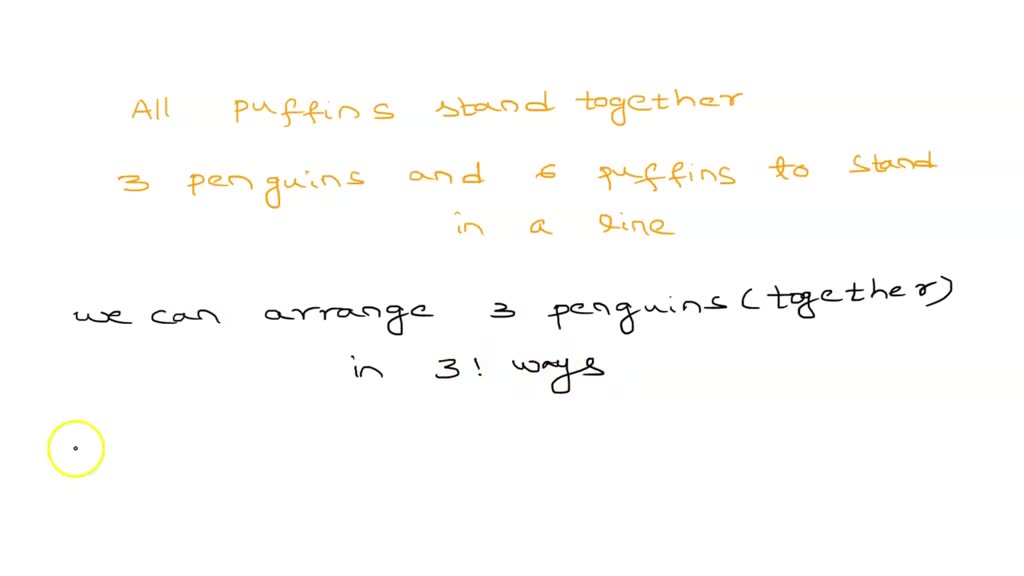 All puffins stand together
3 penguins and 6 puffins to stand
in a line
we can arrange 3 penguins (together)
in 3! ways